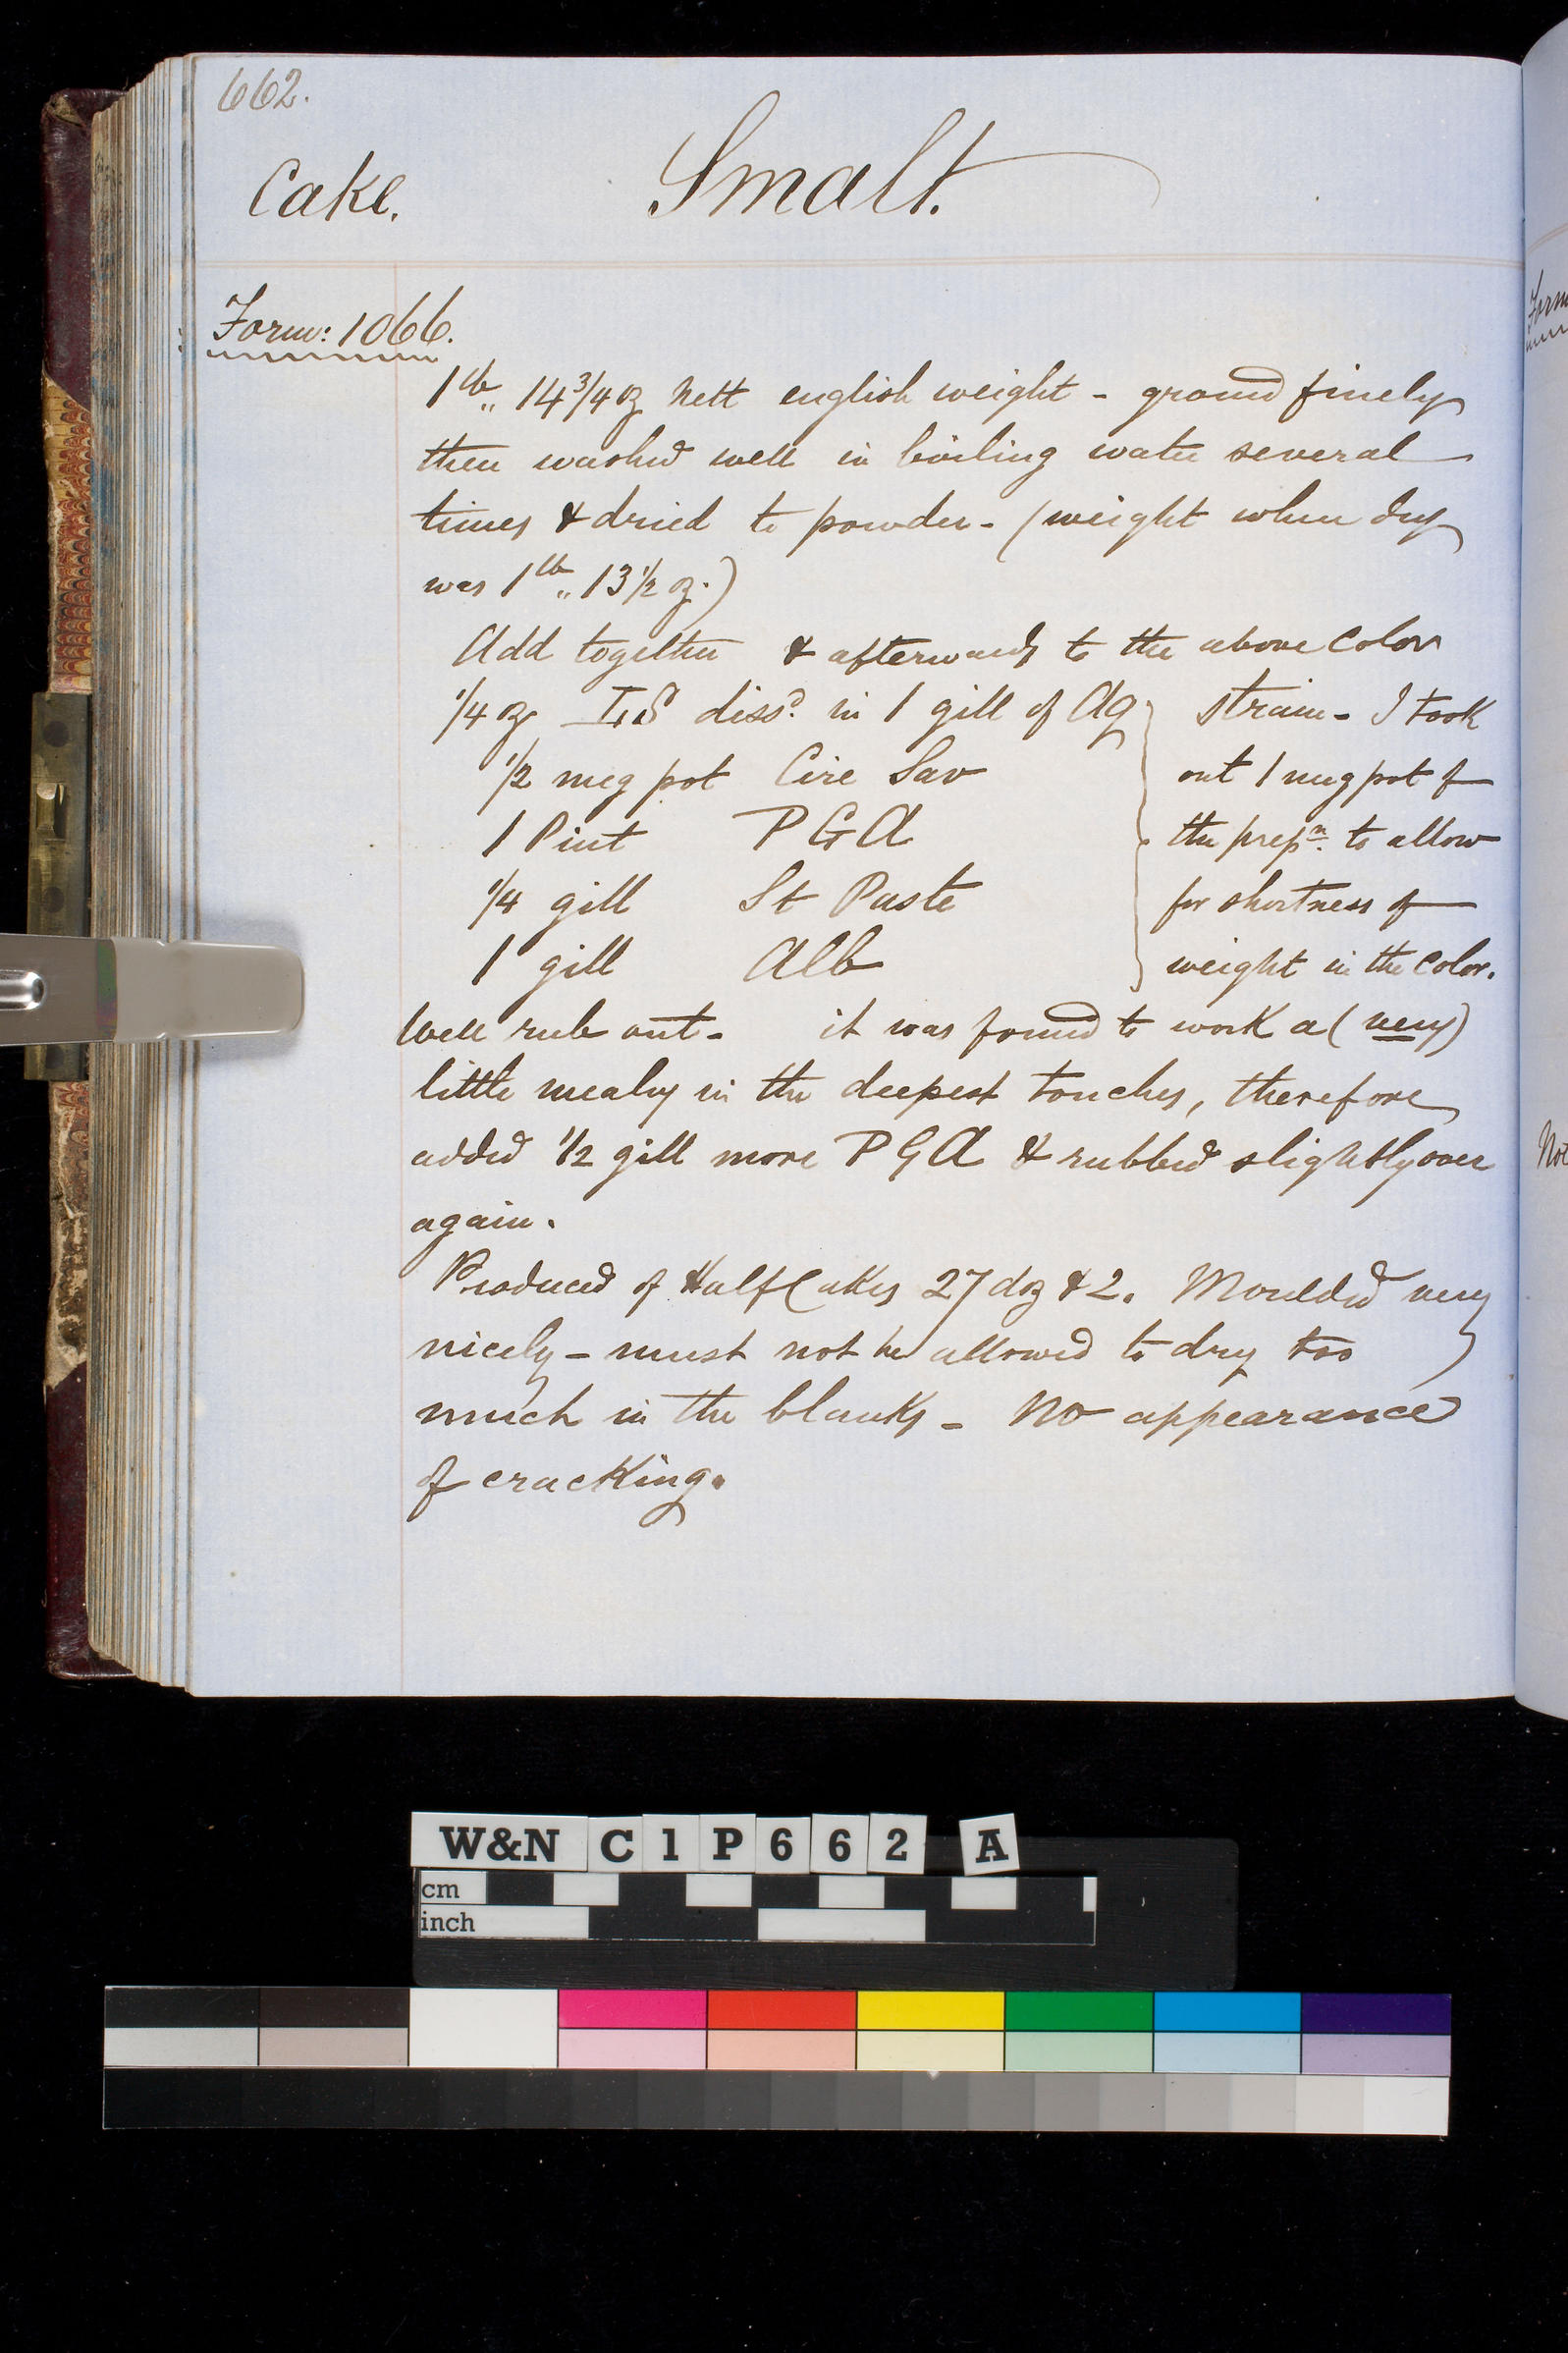 662.
Cake. Smalt.
Form: 1066.
1 lb,, 14 3/4 oz Nett english weight - ground finely
then washed well in boiling water several
times & dried to powder - (weight when dry
was 1 lb,, 13 1/2 oz.)
Add together & afterwards to the above Color
1/4 oz I,S dissd. in 1 gill of Aq
1/2 meg pot Cire Sav
1 Pint P G A
1/4 gill St Paste
1 gill Alb
strain - I took
out 1 meg pot of
the prepn. to allow
for shortness of
weight in the Color.
Well rub out - it was found to work a (very)
little mealy in the deepest touches, therefore
added 1/2 gill more P G A & rubbed slightly over
again.
Produced of Half Cakes 27 doz & 2. Moulded very
nicely - must not be allowed to dry too
much in the blanks - No appearance
of cracking.
Form
Not
W&N C1P662 A
cm
inch